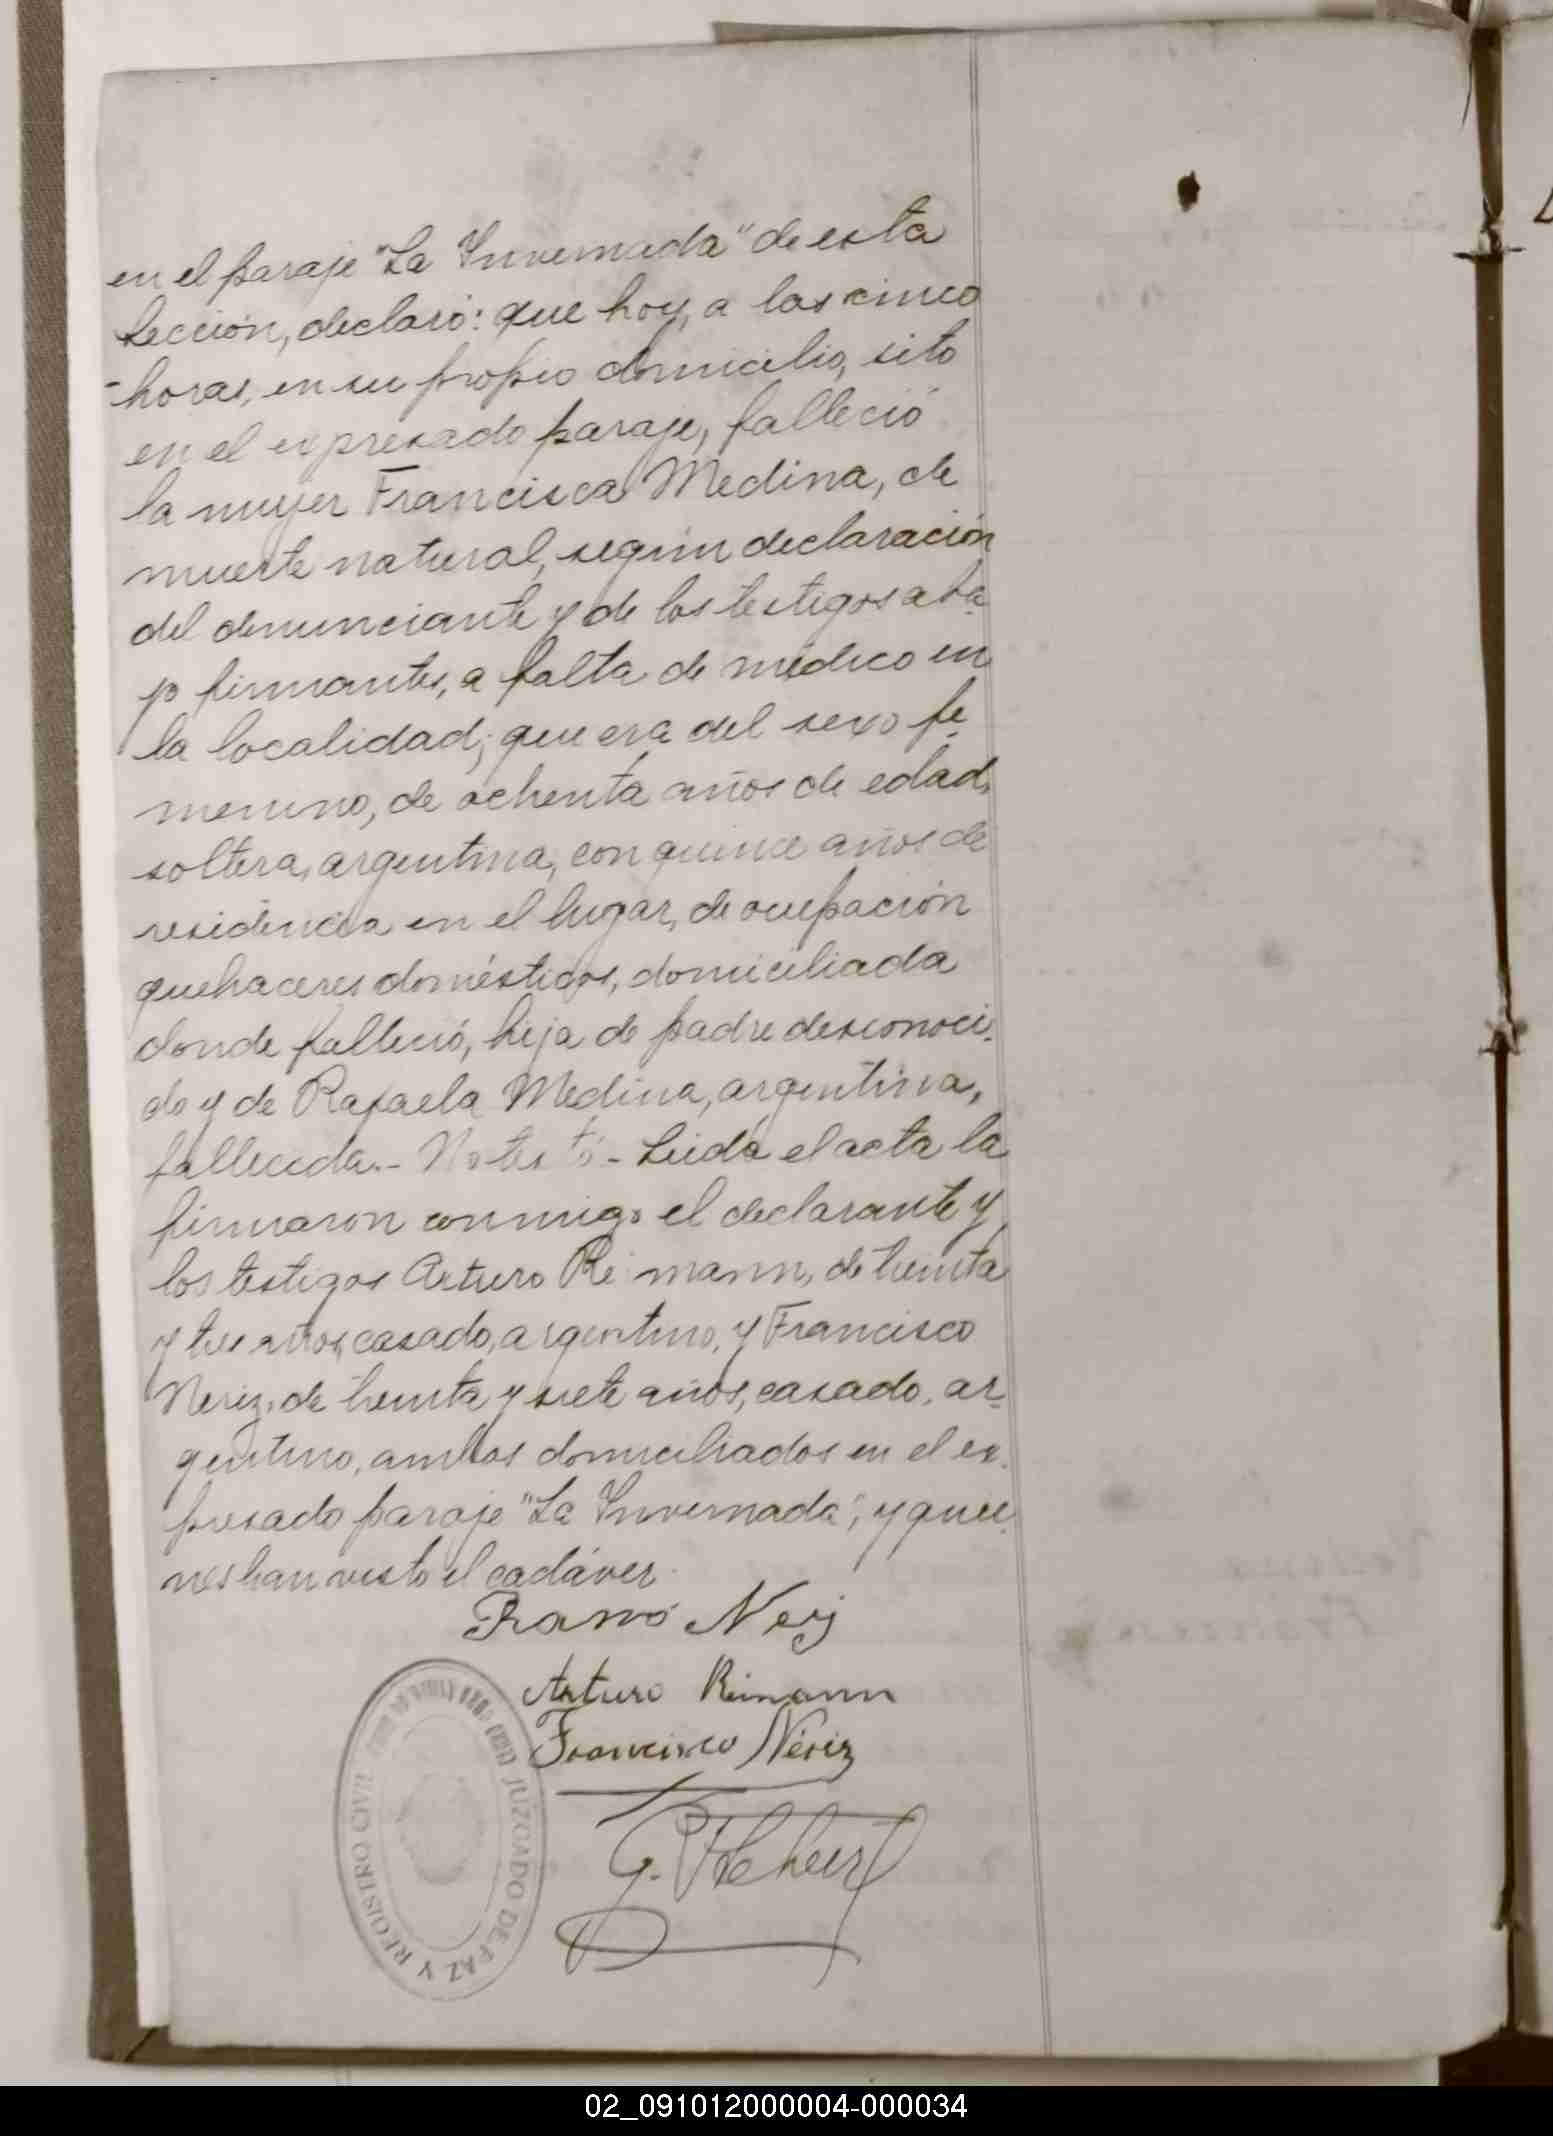 en el paraje "La Invernada" de esta
Sección, declaró: que hoy, a las cinco
-horas, en su propio domicilio, sito
en el expresado paraje, falleció
la mujer Francisca Medina, de
muerte natural, según declaración
del denunciante y de los testigos aba-
jo firmantes, a falta de médico en
la localidad; que era del sexo fe-
menino, de ochenta años de edad,
soltera, argentina, con quince años de
residencia en el lugar, de ocupación
quehaceres domésticos, domiciliada
donde falleció, hija de padre desconoci-
do y de Rafaela Medina, argentina,
fallecida.- No testó.- Leida el acta la
firmaron conmigo el declarante y
los testigos Arturo Reimann, de treinta
y tres años, casado, argentino, y Francisco
Neriz, de treinta y siete años, casado, ar-
gentino, ambos domiciliados en el ex-
presado paraje "La Invernada", y quie-
nes han visto el cadáver.
Neriz
Arturo Reimann
Francisco Nériz
G.
JUZGADO DE PAZ Y REGISTRO CIVIL
02_091012000004-000034